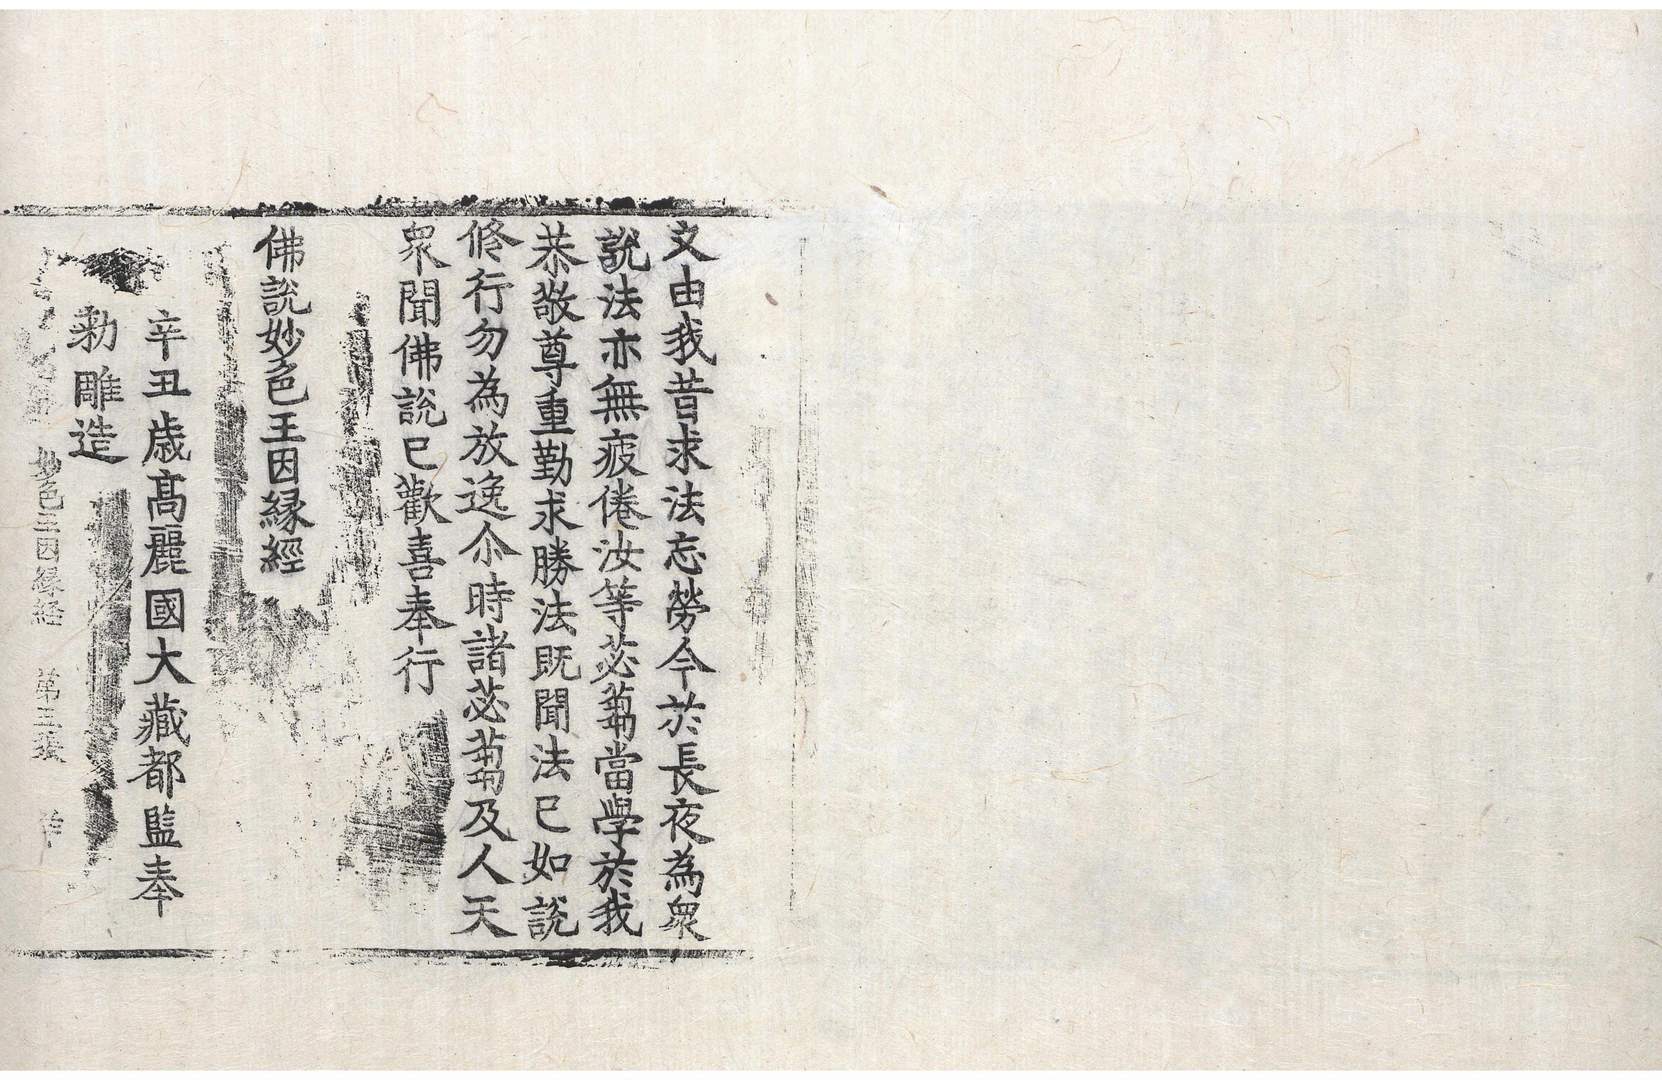 文由我昔求法忘勞今於長夜為衆
說法亦無疲倦汝等苾蒭當學於我
恭敬尊重勤求勝法既聞法已如說
修行勿為放逸尒時諸苾蒭及人天
衆聞佛說已歡喜奉行
佛說妙色王因縁經
辛丑歲高麗國大藏都監奉
勑雕造
妙色王因縁経 第三張